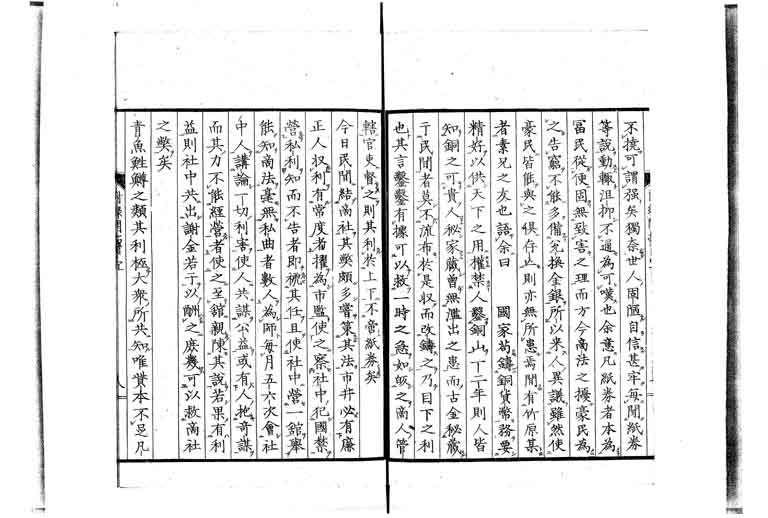 不撓可謂强矣獨奈世人固陋自信甚牢每聞紙券
等說動輙沮抑不過為可嘆也余意凡紙券者本為
冨民從使固無致害之理而方今商法之擾豪民為
之告竆不能多備兌換金銀所以來人異議雖然使
豪民皆能與之俱存止則亦無所患焉聞有竹原某
者素兄之友也語余曰 國家苟鑄銅貨幣務要
精好以供天下之用權禁人鑿銅山一二年則人皆
知銅之可貴人秘家蔵曾無濫出之患而古金秘蔵
于民間者莫不流布於是収而改鑄之乃目下之利
也其言鑿鑿有據可以救一時之急如皈之商人管
轄官吏督之則其利於上下不啻紙券矣
今日民間結商社其獘頗多嘗策其法市井必有廉
正人収利有常度者擢為市監使之察社中犯國禁
營私利知而不告者即褫其任且使社中營一舘舉
能知商法毫無私曲者數人為師每月五六次會社
中人講論一切利害使人共謀公益或有人抱奇謀
而其力不能經營者使之至舘親陳其說若果有利
益則社中共出謝金若干以酬之庶幾可以救商社
之獘矣
青魚鮏鱒之類其利極大衆所共知唯貲本不足凡